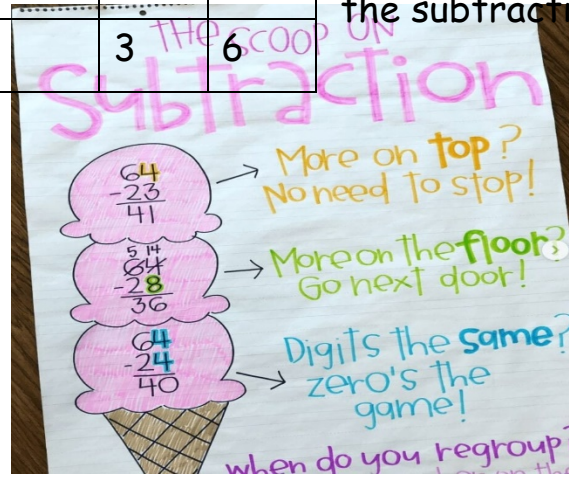 the subtracti
3 6
THE SCOOP ON
Subtraction
64
-23
41
More on top?
No need to stop!
5 14
64
-28
36
More on the floor?
Go next door!
64
-24
40
Digits the same?
zero's the
game!
when do you regroup?